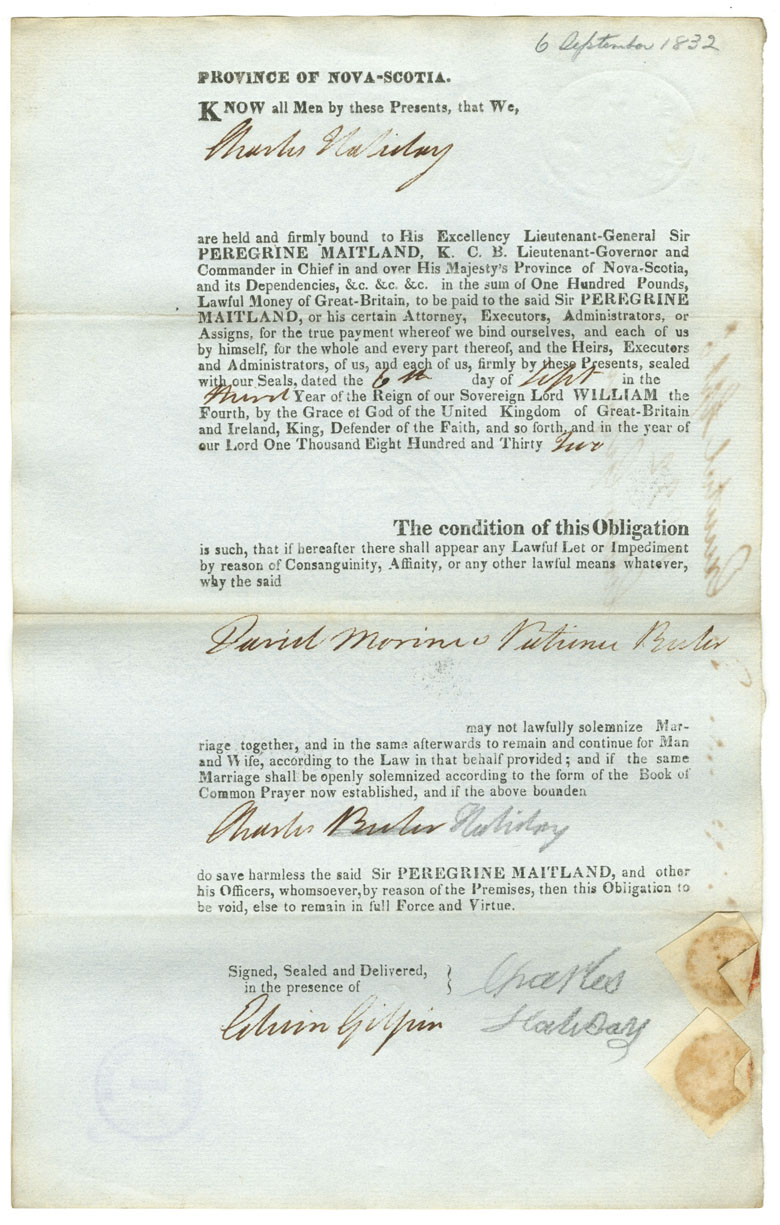 6 September 1832
PROVINCE OF NOVA-SCOTIA.
KNOW all Men by these Presents, that We,
Charles Haliday
are held and firmly bound to His Excellency Lieutenant-General Sir
PEREGRINE MAITLAND, K. C. B. Lieutenant-Governor and
Commander in Chief in and over His Majesty's Province of Nova-Scotia,
and its Dependencies, &c. &c. &c. in the sum of One Hundred Pounds,
Lawful Money of Great-Britain, to be paid to the said Sir PEREGRINE
MAITLAND, or his certain Attorney, Executors, Administrators, or
Assigns, for the true payment whereof we bind ourselves, and each of us
by himself, for the whole and every part thereof, and the Heirs, Executors
and Administrators, of us, and each of us, firmly by these Presents, sealed
with our Seals, dated the 6th day of Sept in the
third Year of the Reign of our Sovereign Lord WILLIAM the
Fourth, by the Grace of God of the United Kingdom of Great-Britain
and Ireland, King, Defender of the Faith, and so forth, and in the year of
our Lord One Thousand Eight Hundred and Thirty Two
The condition of this Obligation
is such, that if hereafter there shall appear any Lawful Let or Impediment
by reason of Consanguinity, Affinity, or any other lawful means whatever,
why the said
David Morine & Patience Buler
may not lawfully solemnize Mar-
riage together, and in the same afterwards to remain and continue for Man
and Wife, according to the Law in that behalf provided; and if the same
Marriage shall be openly solemnized according to the form of the Book of
Common Prayer now established, and if the above bounden
Charles Buler Haliday
do save harmless the said Sir PEREGRINE MAITLAND, and other
his Officers, whomsoever, by reason of the Premises, then this Obligation to
be void, else to remain in full Force and Virtue.
Signed, Sealed and Delivered,
in the presence of
Charles
Edwin Gilpin
Haliday